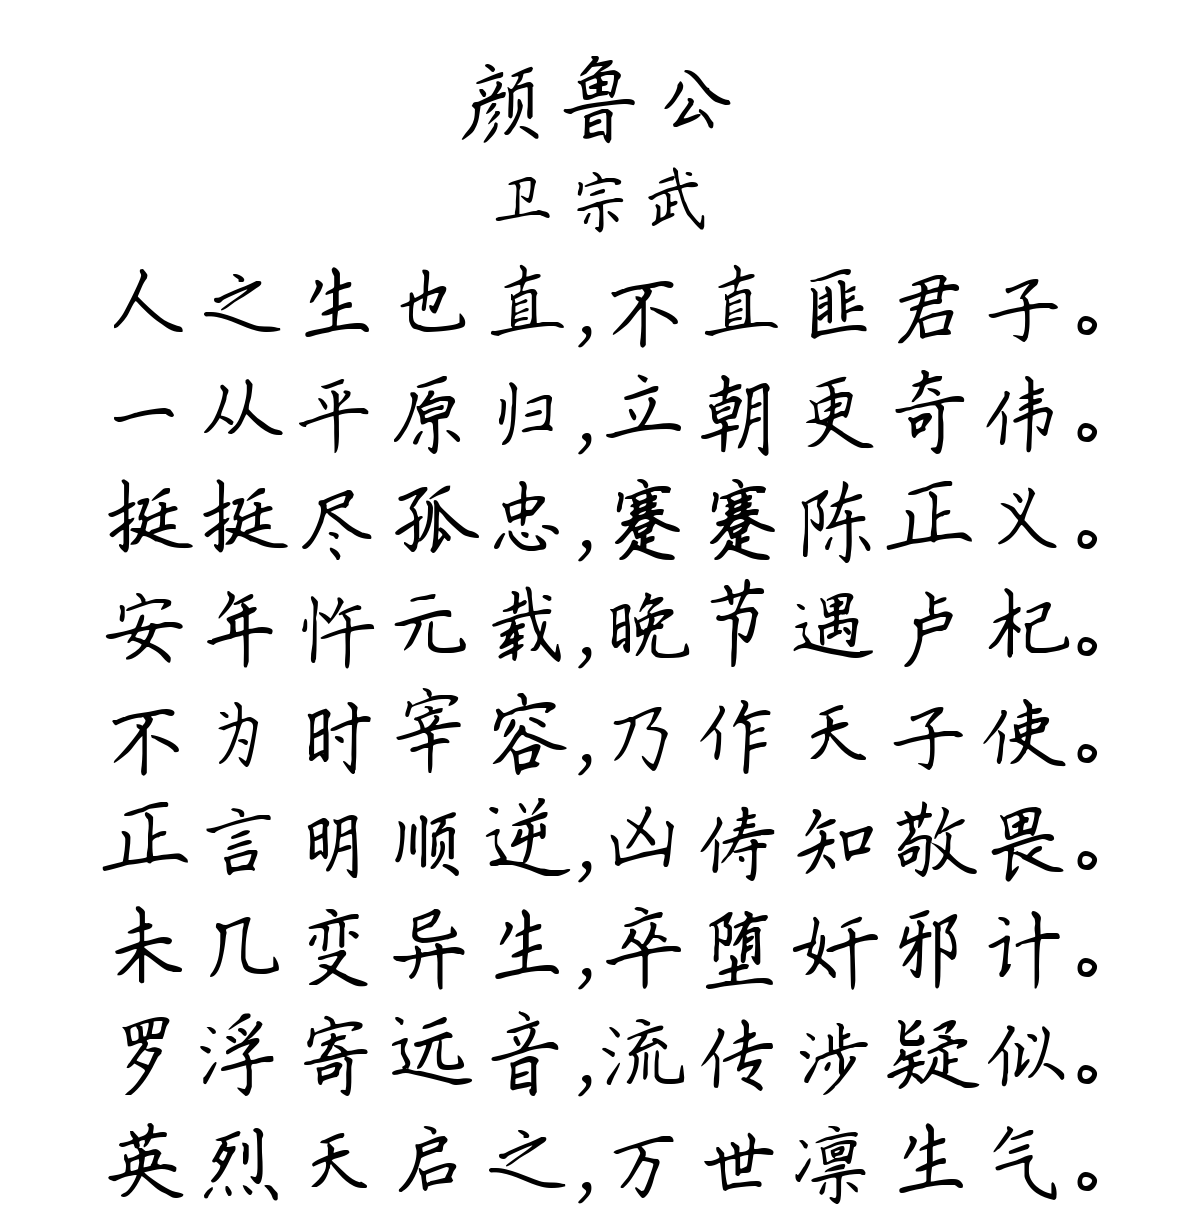 颜鲁公
卫宗武
人之生也直,不直匪君子。
一从平原归,立朝更奇伟。
挺挺尽孤忠,蹇蹇陈正义。
安年忤元载,晚节遇卢杞。
不为时宰容,乃作天子使。
正言明顺逆,凶俦知敬畏。
未几变异生,卒堕奸邪计。
罗浮寄远音,流传涉疑似。
英烈天启之,万世凛生气。